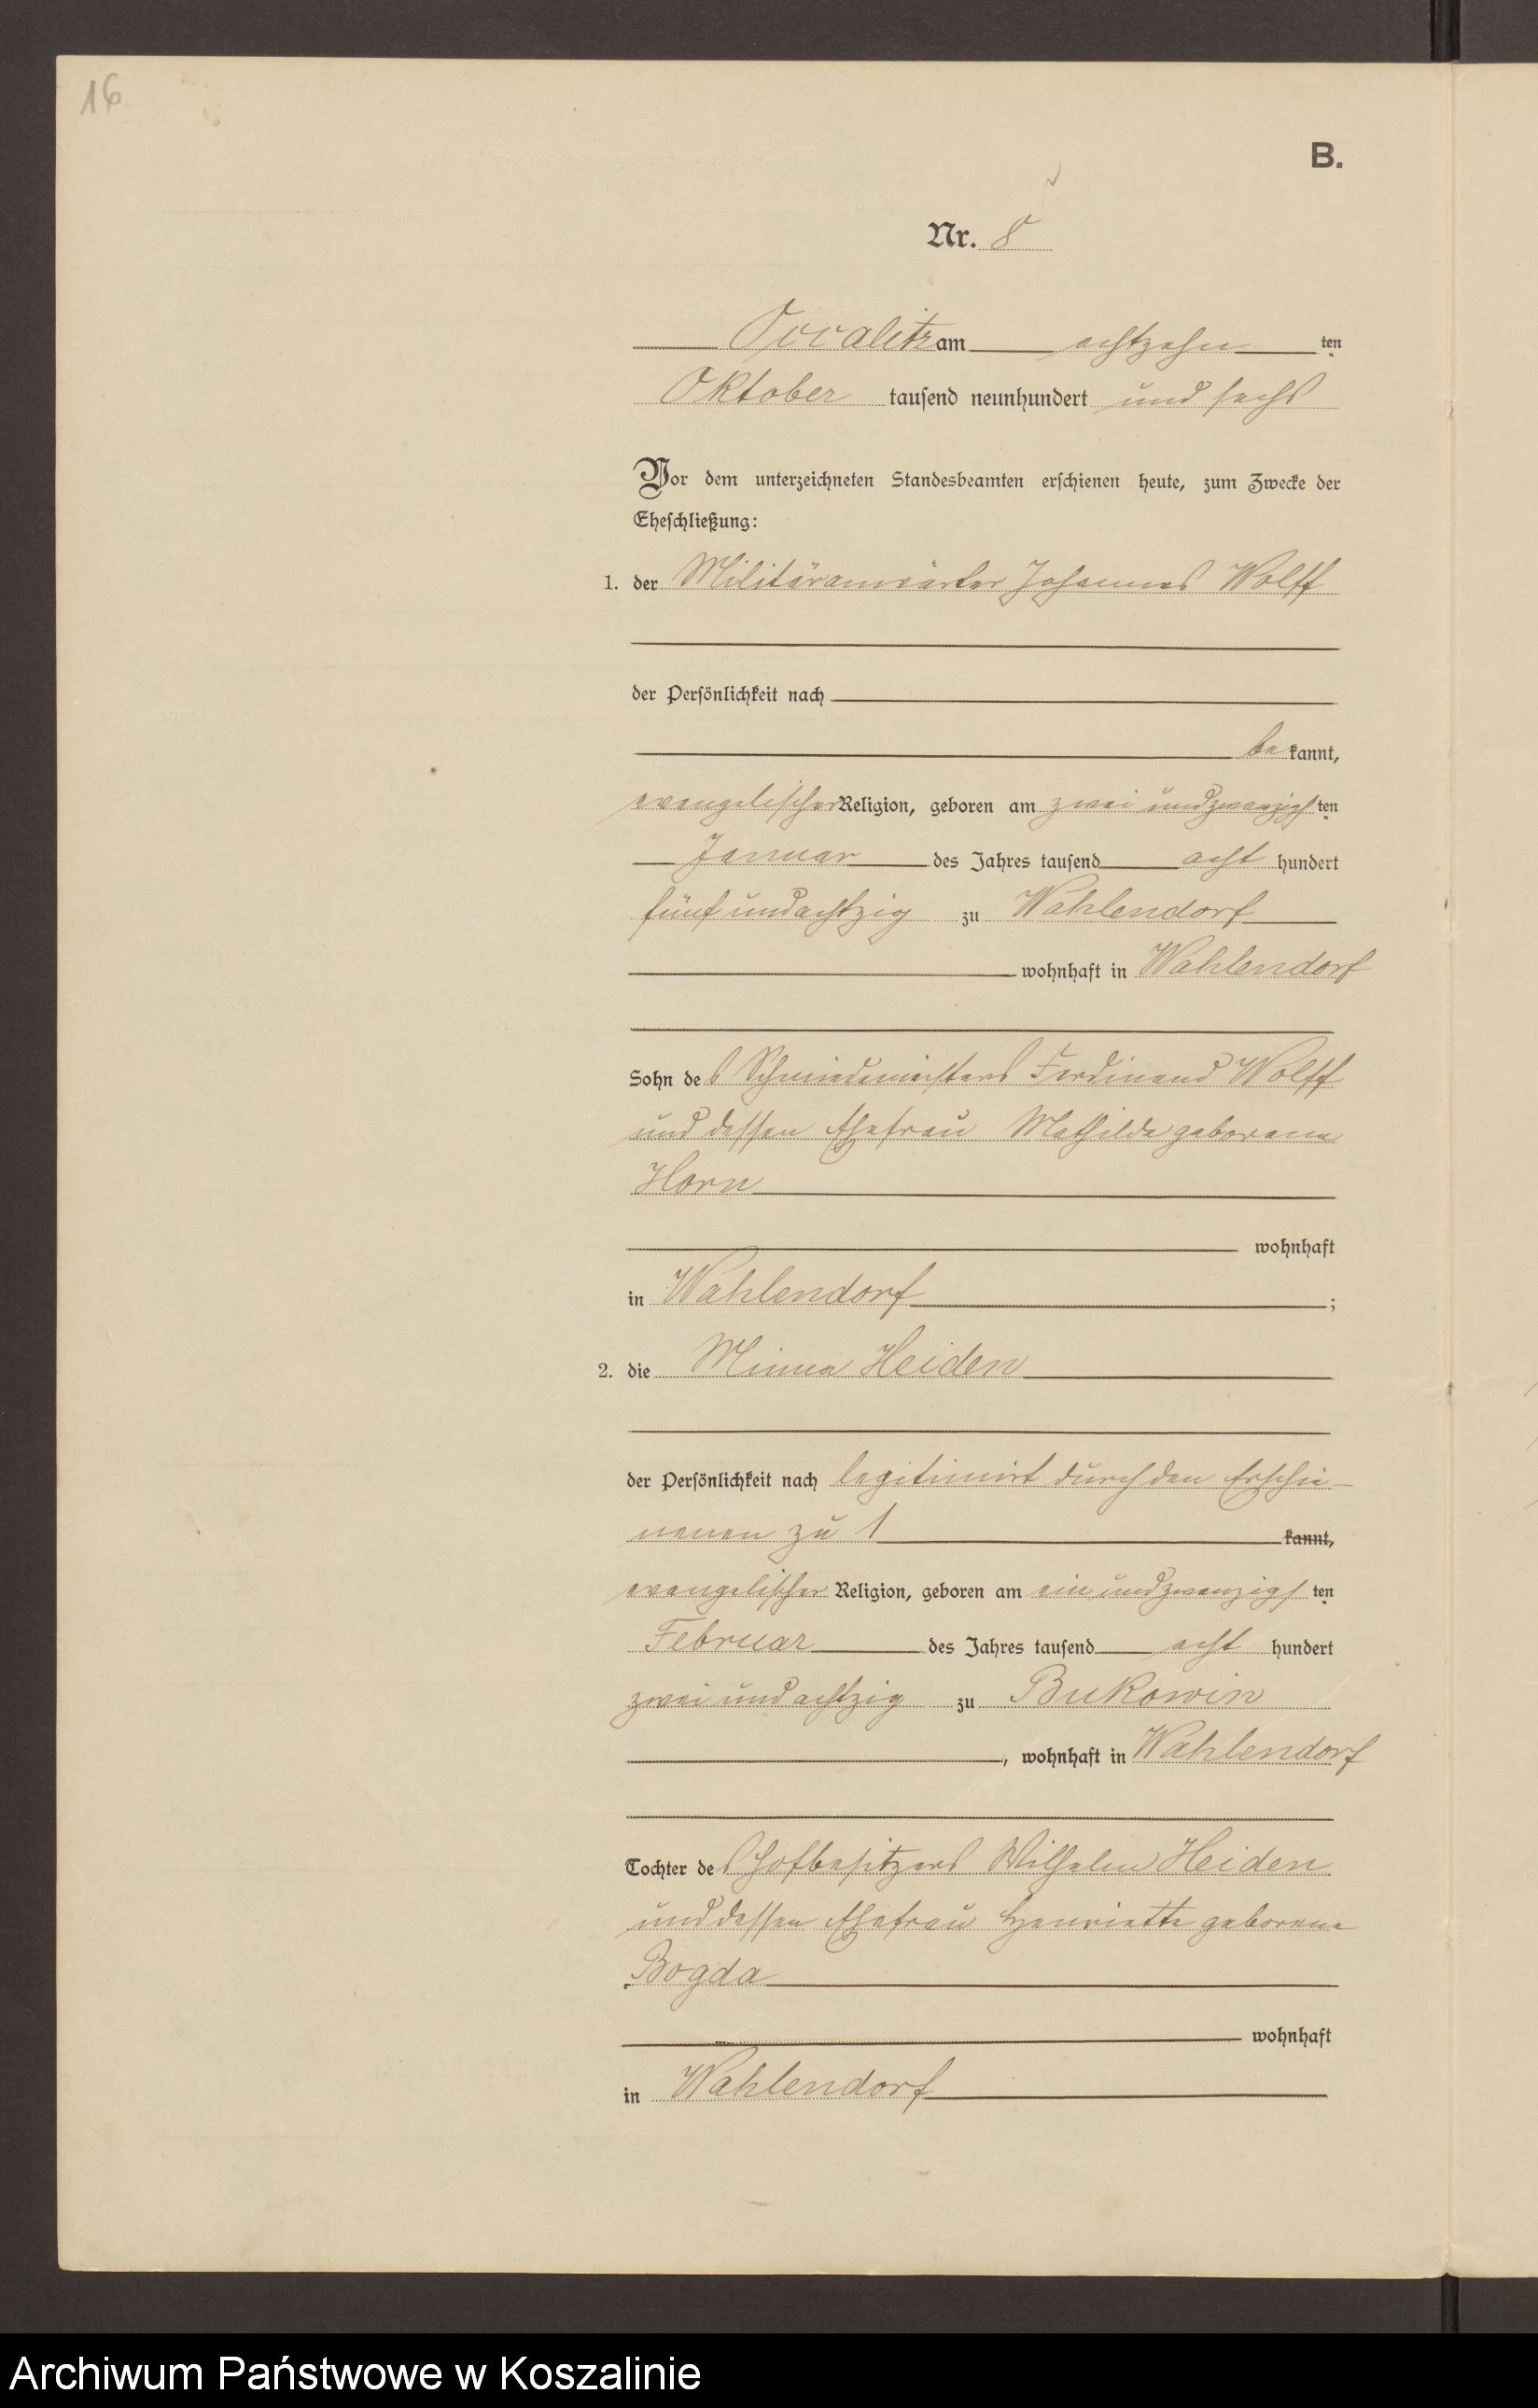 16
B.
Nr. 8
Occalitz am achtzehnten
Oktober tausend neunhundert und sechs
Vor dem unterzeichneten Standesbeamten erschienen heute, zum Zwecke der
Eheschließung:
1. der Militäranwärter Johannes Wolff
der Persönlichkeit nach
bekannt,
evangelischer Religion, geboren am zwei und zwanzigsten
Januar des Jahres tausend acht hundert
fünf und achtzig zu Wahlendorf
wohnhaft in Wahlendorf
Sohn des Schmiedemeisters Ferdinand Wolff
und dessen Ehefrau Mathilde geborene
Horn
wohnhaft
in Wahlendorf ;
2. die Minna Heiden
der Persönlichkeit nach legitimirt durch den Erschie-
nenen zu 1 kannt,
evangelischer Religion, geboren am ein und zwanzigsten
Februar des Jahres tausend acht hundert
zwei und achtzig zu Bukowin
, wohnhaft in Wahlendorf
Tochter des Hofbesitzers Wilhelm Heiden
und dessen Ehefrau Henriette geborene
Bogda
wohnhaft
in Wahlendorf
Archiwum Państwowe w Koszalinie